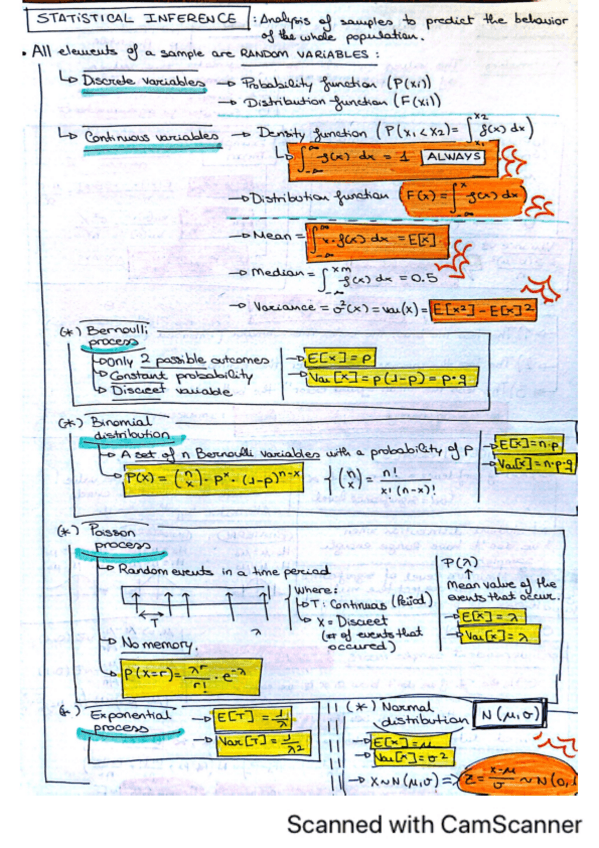 STATISTICAL INFERENCE : Analysis of samples to predict the behavior
of the whole population.
• All elements of a sample are RANDOM VARIABLES :
↳ Discrete variables → Probability function (P(xi))
→ Distribution function (F(xi))
↳ Continuous variables → Density function (P(x1<x2) = ∫_{x1}^{x2} f(x) dx)
↳ ∫_{-∞}^{∞} f(x) dx = 1 ALWAYS
→ Distribution function F(x) = ∫_{-∞}^{x} f(x) dx
→ Mean = ∫_{-∞}^{∞} x·f(x) dx = E[x]
→ Median = ∫_{-∞}^{xm} f(x) dx = 0.5
→ Variance = σ²(x) = var(x) = E[x²] - E[x]²
(*) Bernoulli
process
↳ Only 2 possible outcomes → E[x] = p
↳ Constant probability → Var[x] = p(1-p) = p·q
↳ Discreet variable
(*) Binomial
distribution
↳ A set of n Bernoulli variables with a probability of p → E[x] = n·p
→ P(x) = (n x) · p^x · (1-p)^{n-x} { (n x) = n! / x! (n-x)! → Var[x] = n·p·q
(*) Poisson
process
↳ Random events in a time period
Where:
↳ T: Continuous (Period)
↳ X = Discreet
(nr of events that
occurred)
T
λ
P(λ)
↑
Mean value of the
events that occur.
→ E[x] = λ
→ Var[x] = λ
↳ No memory.
↳ P(X=r) = λ^r / r! · e^{-λ}
(*) Exponential
process
→ E[T] = 1/λ
→ Var[T] = 1/λ²
(*) Normal
distribution N(μ,σ)
→ E[x] = μ
→ Var[x] = σ²
→ X~N(μ,σ) => Z = x-μ / σ ~ N(0,
Scanned with CamScanner